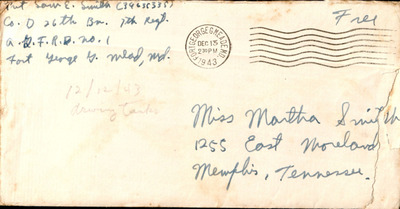 Pvt Sam E. Smith (34635335)
Co. D 26th Bn. 7th Regt.
A.G.F.R.D. no. 1
Fort George G. Mead, Md.
FORT GEORGE G MEADE MD.
DEC 13
2 PM
1943
Free
12/12/43
driving tanks
Miss Martha Smith
1255 East Moreland
Memphis, Tennessee.